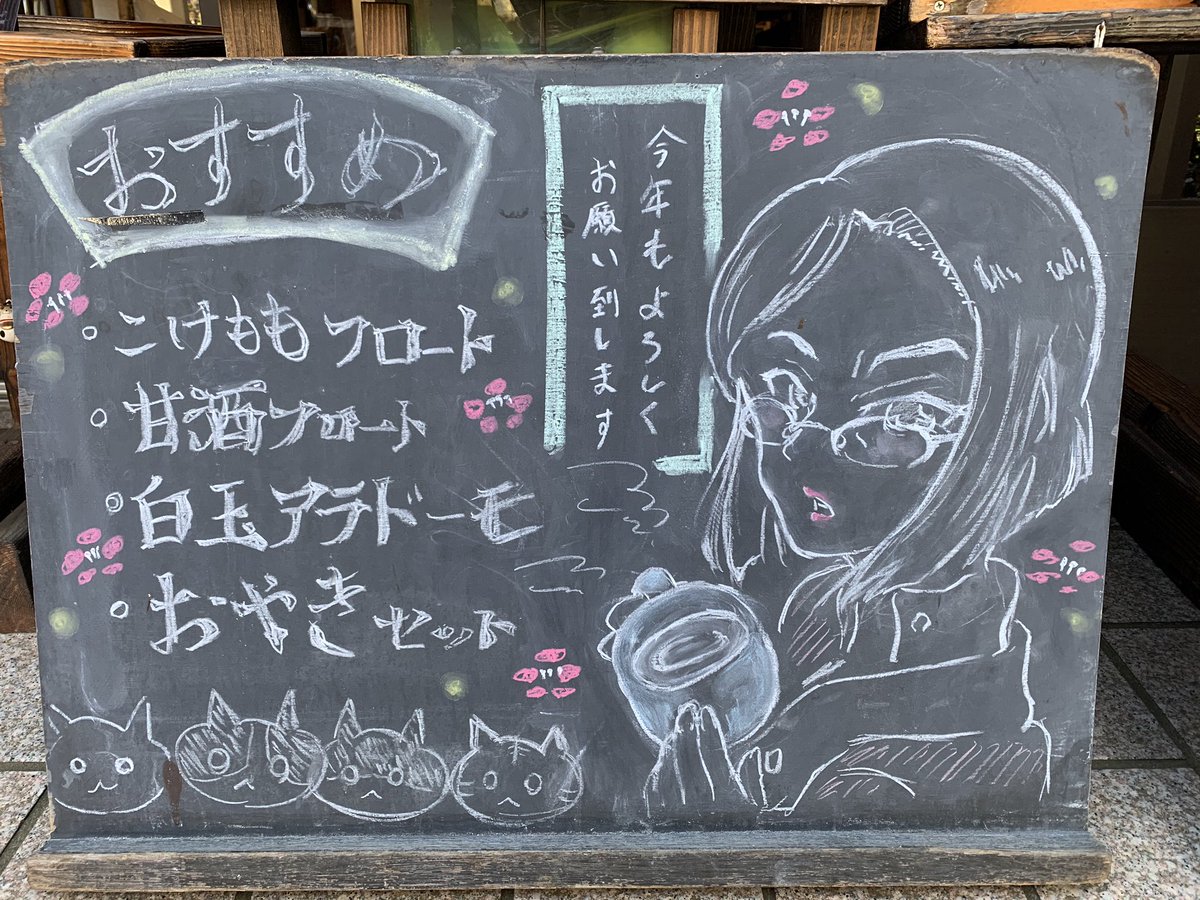 おすすめ
今年もよろしく
お願い到します
○こけももフロート
○甘酒フロート
○白玉アラドーモ
○おやきセット